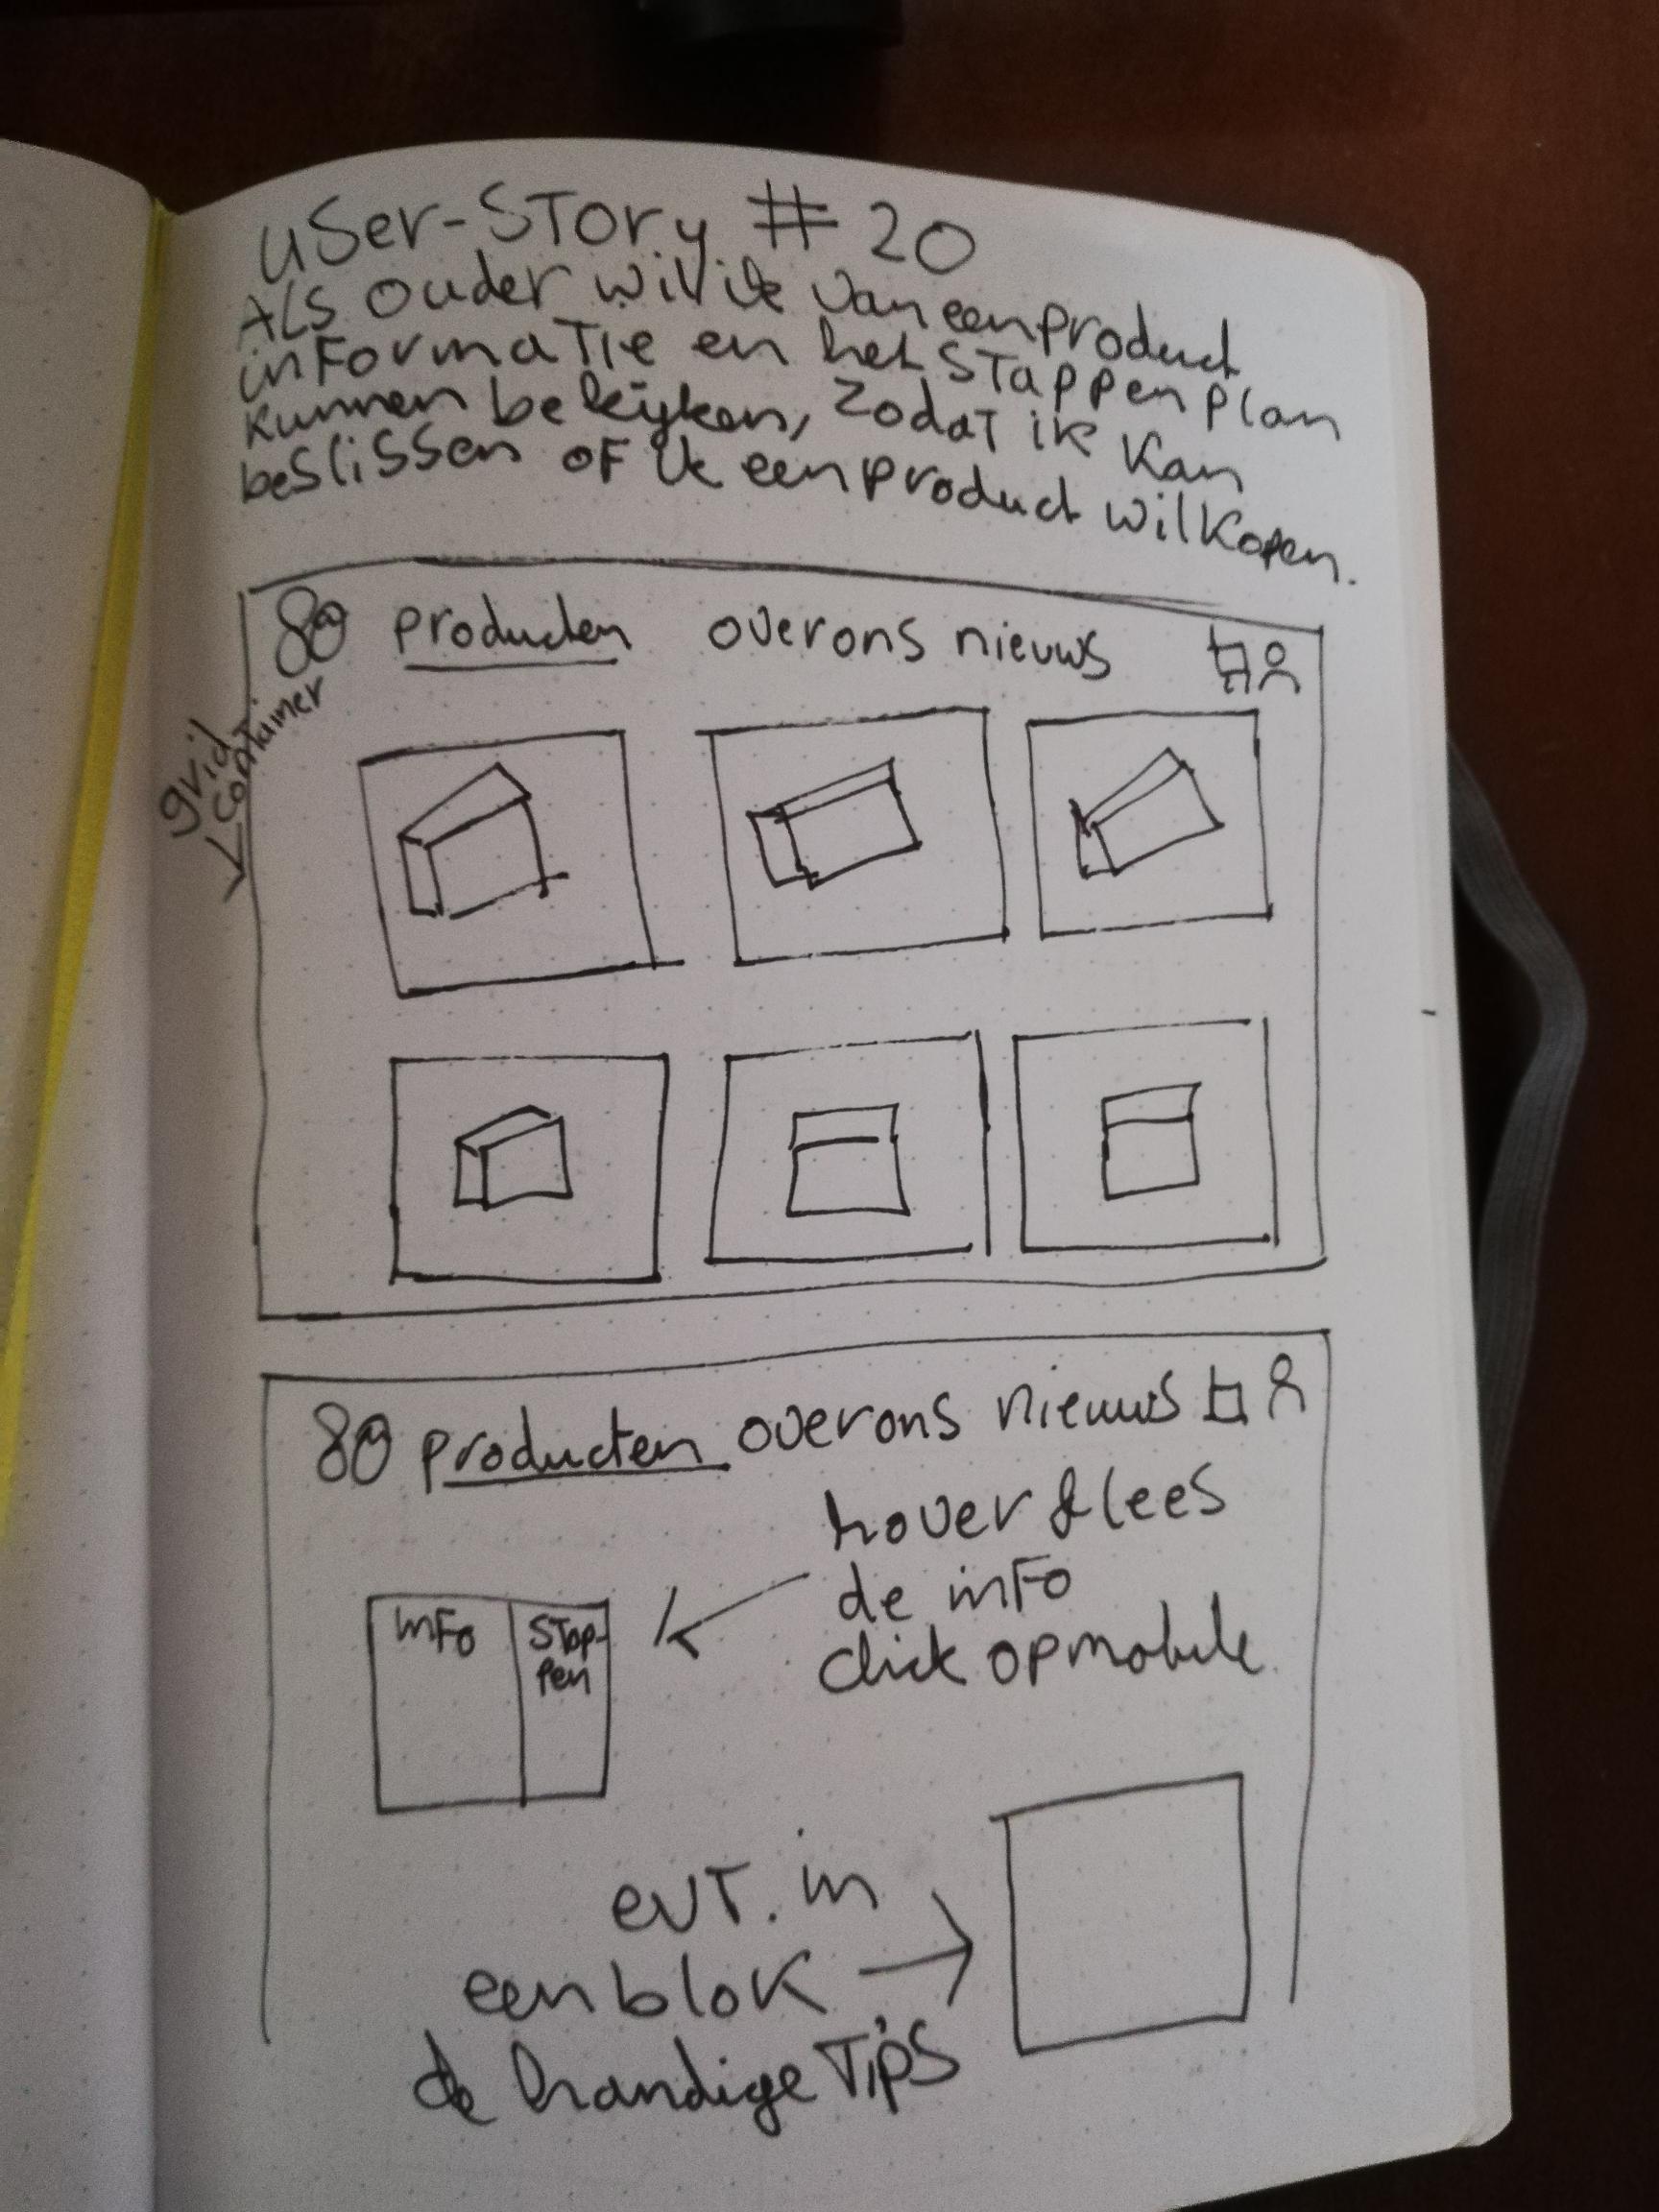 user-story #20
Als ouder wil ik van een product
informatie en het stappenplan
kunnen bekijken, zodat ik kan
beslissen of ik een product wil kopen.
producten over ons nieuws
grid
container
producten over ons nieuws
hover & lees
de info
click op mobile
info
stap-
pen
evt. in
een blok
de handige tips